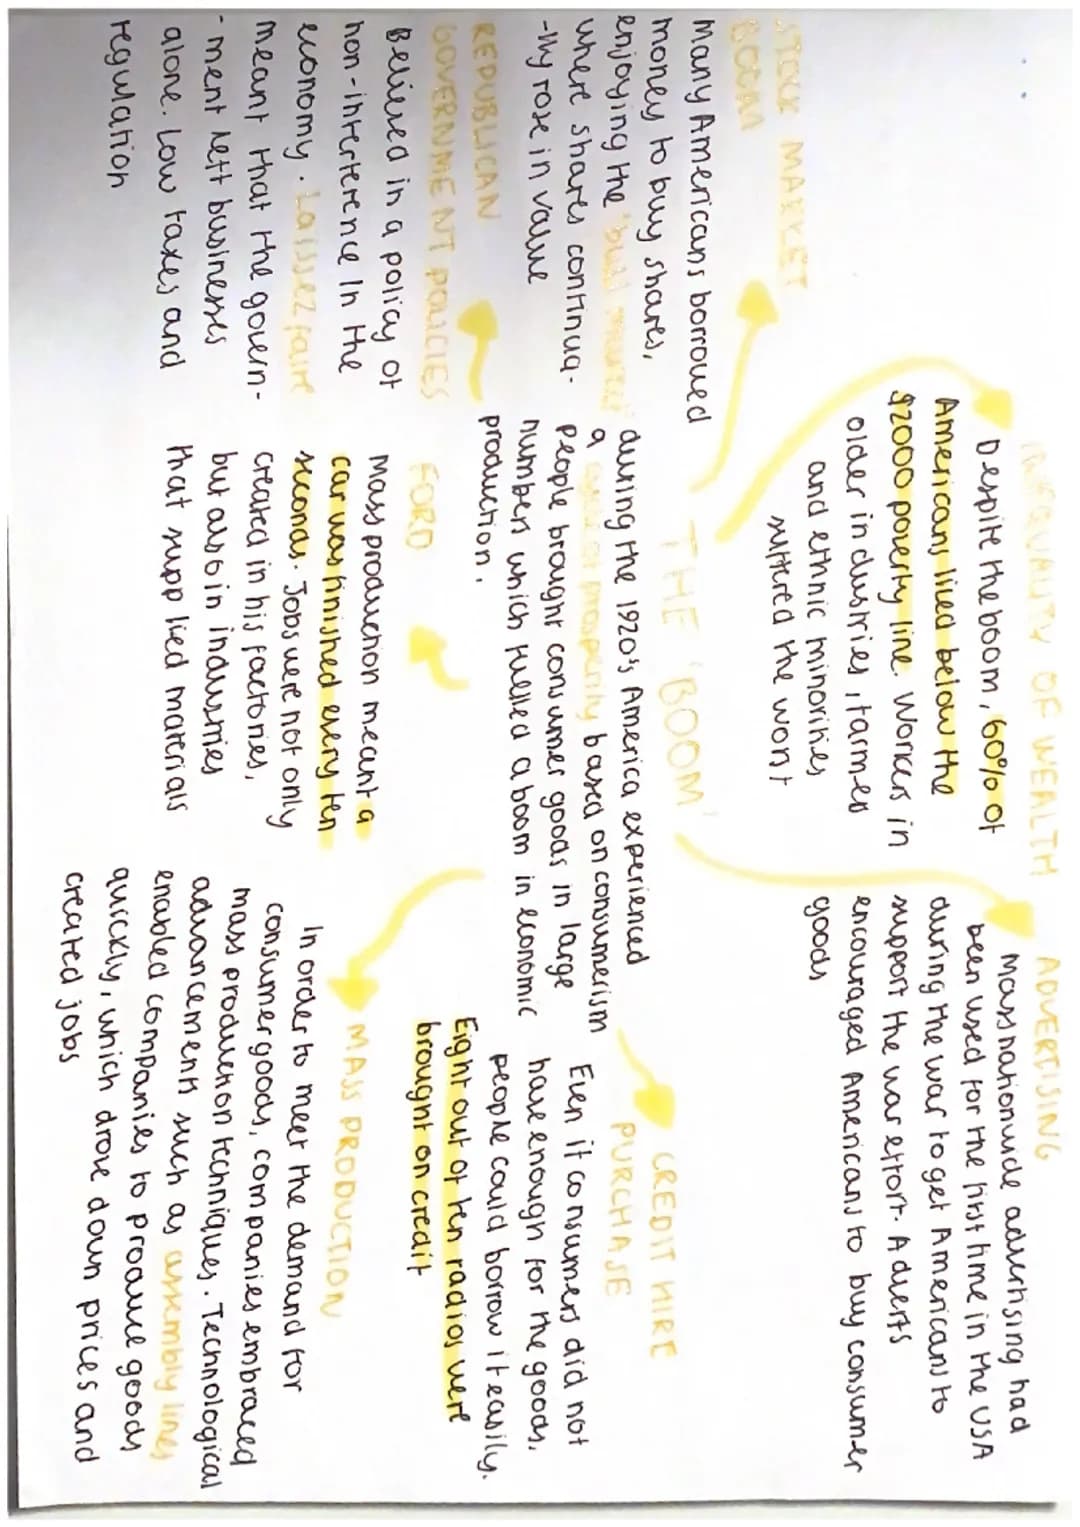 THE 'BOOM'
during the 1920s America experienced
a cycle of prosperity based on consumerism
people brought consumer goods in large
numbers which fuelled a boom in economic
production.
INEQUALITY OF WEALTH
Despite the boom, 60% of
Americans lived below the
$2000 poverty line. Workers in
older industries, farmers
and ethnic minorities
suffered the worst
ADVERTISING
Mass nationwide advertising had
been used for the first time in the USA
during the war to get Americans to
support the war effort. Adverts
encouraged Americans to buy consumer
goods
STOCK MARKET
BOOM
Many Americans borrowed
money to buy shares,
enjoying the 'bull market'
where shares continua-
-lly rose in value
CREDIT HIRE
PURCHASE
Even if consumers did not
have enough for the goods,
people could borrow it easily.
Eight out of ten radios were
brought on credit
REPUBLICAN
GOVERNMENT POLICIES
Believed in a policy of
non-interference in the
economy. Laissez faire
meant that the govern-
-ment left businesses
alone. Low taxes and
regulation
FORD
Mass production meant a
car was finished every ten
seconds. Jobs were not only
created in his factories,
but also in industries
that supplied materials
MASS PRODUCTION
In order to meet the demand for
consumer goods, companies embraced
mass production techniques. Technological
advancements such as assembly lines
enabled companies to produce goods
quickly, which drove down prices and
created jobs